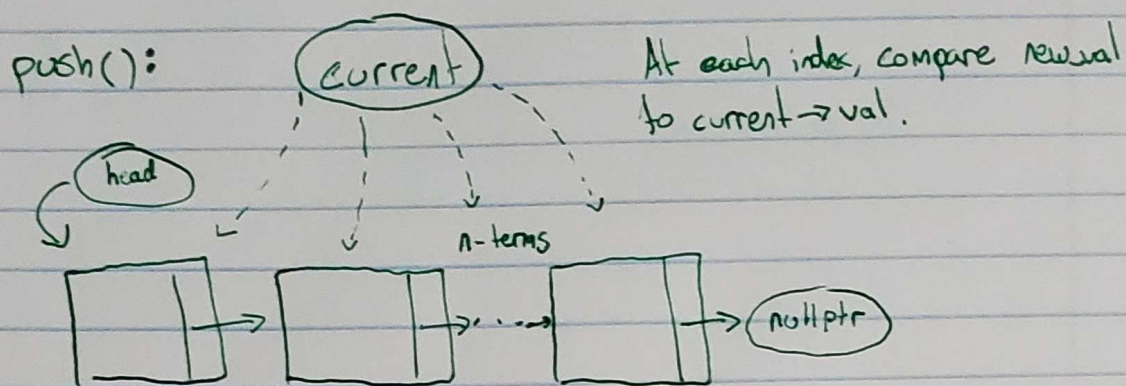 push():
current
At each index, compare new val
to current→val.
head
n-terms
nullptr